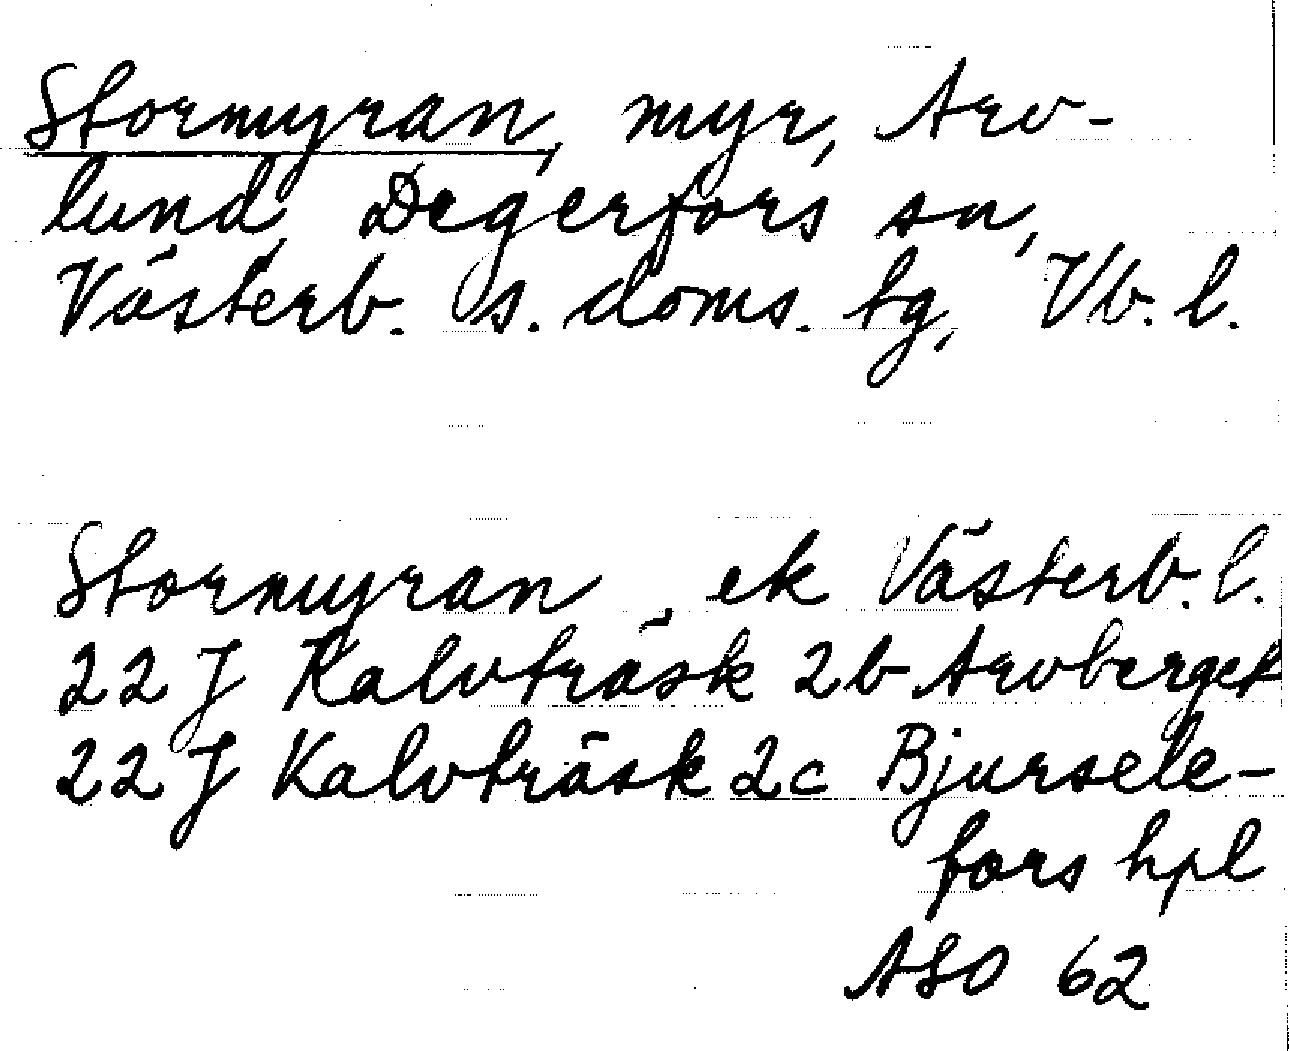 Stormyran, myr, Arv-
lund, Degerfors sn,
Västerb. s. doms. tg, Vb. l.
Stormyran, ek Västerb. l.
22 J Kalvträsk 2b Arvberget
22 J Kalvträsk 2c Bjursele-
fors hpl
ASO 62